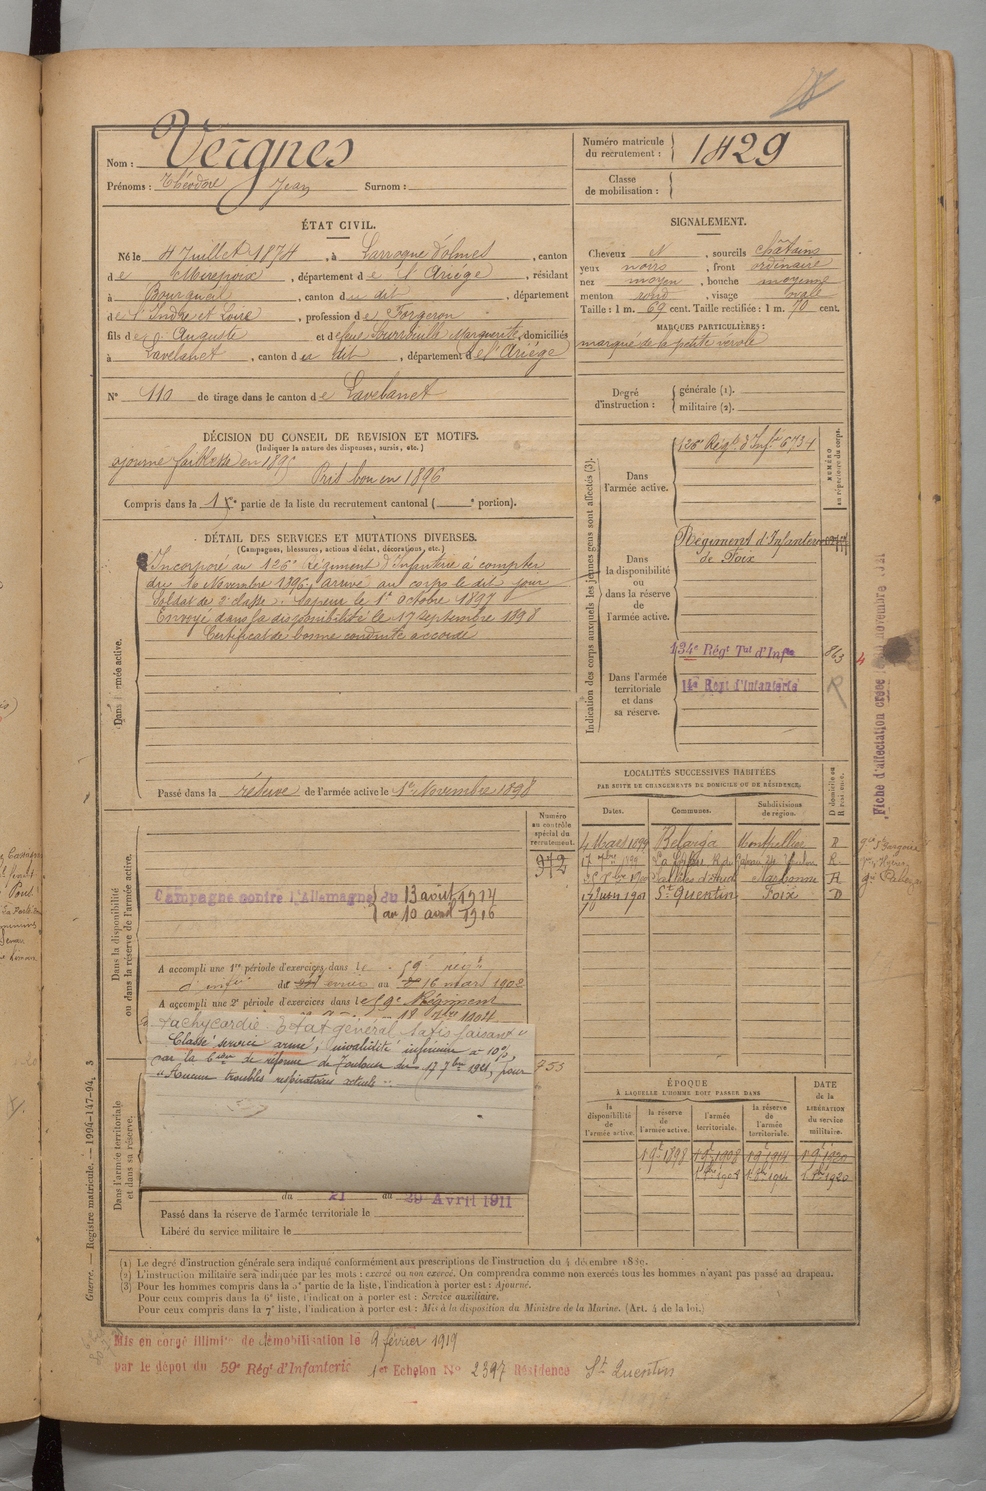 Nom : Vergnes
Prénoms : Théodore Jean Surnom :
Numéro matricule du recrutement : 1429
Classe de mobilisation :
ÉTAT CIVIL.
Né le 4 Juillet 1874, à Larroque d'olmes, canton
de Mirepoix, département de l'Ariége, résidant
à Bourgueil, canton du dit, département
de l'Indre et Loire, profession de Forgeron
fils de Auguste et de feue Marguerite, domiciliés
à Lavelanet, canton du dit, département de l'Ariége
N° 110 de tirage dans le canton de Lavelanet
SIGNALEMENT.
Cheveux N, sourcils châtains
yeux noirs, front ordinaire
nez moyen, bouche moyenne
menton rond, visage ovale
Taille : 1 m. 69 cent. Taille rectifiée : 1 m. 70 cent.
MARQUES PARTICULIÈRES :
marqué de la petite vérole
Degré d'instruction : générale (1).
militaire (2).
DÉCISION DU CONSEIL DE REVISION ET MOTIFS.
(Indiquer la nature des dispenses, sursis, etc.)
ajourné faiblesse en 1895
Pris bon en 1896
Compris dans la 1re partie de la liste du recrutement cantonal ( e portion).
DÉTAIL DES SERVICES ET MUTATIONS DIVERSES.
(Campagnes, blessures, actions d'éclat, décorations, etc.)
Dans l'armée active.
Incorporé au 126e Régiment d'Infanterie à compter
du 10 Novembre 1896, arrivé au corps le dit jour
Soldat de 2e classe. Sapeur le 1er octobre 1897
Envoyé dans la disponibilité le 17 septembre 1898
Certificat de bonne conduite accordé
Passé dans la réserve de l'armée active le 1er Novembre 1898
Indication des corps auxquels les jeunes gens sont affectés (3).
NUMÉRO au répertoire du corps.
Dans l'armée active.
126e Régt d'Infie 6731
Dans la disponibilité ou dans la réserve de l'armée active.
Régiment d'Infanterie
de Foix
Dans l'armée territoriale et dans sa réserve.
134e Régt Tal d'Infie 863
14e Regt d'Infanterie R
Fiche d'affectation créée novembre
LOCALITÉS SUCCESSIVES HABITÉES
PAR SUITE DE CHANGEMENTS DE DOMICILE OU DE RÉSIDENCE.
Dates. Communes. Subdivisions de région. D domicile ou R résidence.
4 Mars 1899 Belarga Montpellier R
Toulon R
Salles d'Aude Narbonne R
1901 St Quentin Foix D
Dans la disponibilité ou dans la réserve de l'armée active.
Numéro au contrôle spécial du recrutement.
972
Campagne contre l'Allemagne du 13 août 1914
au 10 avril 1916
A accompli une 1re période d'exercices dans le 59e régt
d'infie du au 16 mars 1902
A accompli une 2e période d'exercices dans le 59e Régiment
tachycardie. Etat général satisfaisant
Classé service armé, invalidité inférieure à 10%,
par la Cion de réforme de Toulouse du 17 7bre 1921, pour
"Aucun troubles respiratoires actuels"
753
Dans l'armée territoriale et dans sa réserve.
du 21 au 29 Avril 1911
Passé dans la réserve de l'armée territoriale le
Libéré du service militaire le
ÉPOQUE
À LAQUELLE L'HOMME DOIT PASSER DANS
la disponibilité de l'armée active. la réserve de l'armée active. l'armée territoriale. la réserve de l'armée territoriale.
DATE de la LIBÉRATION du service militaire.
1 9bre 1898 1 9bre 1908 1 9bre 1914 1 9bre 1920
(1) Le degré d'instruction générale sera indiqué conformément aux prescriptions de l'instruction du 4 décembre 1889.
(2) L'instruction militaire sera indiquée par les mots : exercé ou non exercé. On comprendra comme non exercés tous les hommes n'ayant pas passé au drapeau.
(3) Pour les hommes compris dans la 5e partie de la liste, l'indication à porter est : Ajourné.
Pour ceux compris dans la 6e liste, l'indication à porter est : Service auxiliaire.
Pour ceux compris dans la 7e liste, l'indication à porter est : Mis à la disposition du Ministre de la Marine. (Art. 4 de la loi.)
Guerre. — Registre matricule. — 1994-147-94. 3
Mis en congé illimité de démobilisation le 9 février 1919
par le dépot du 59e Régt d'Infanterie 1er Echelon No 2397 Résidence St Quentin